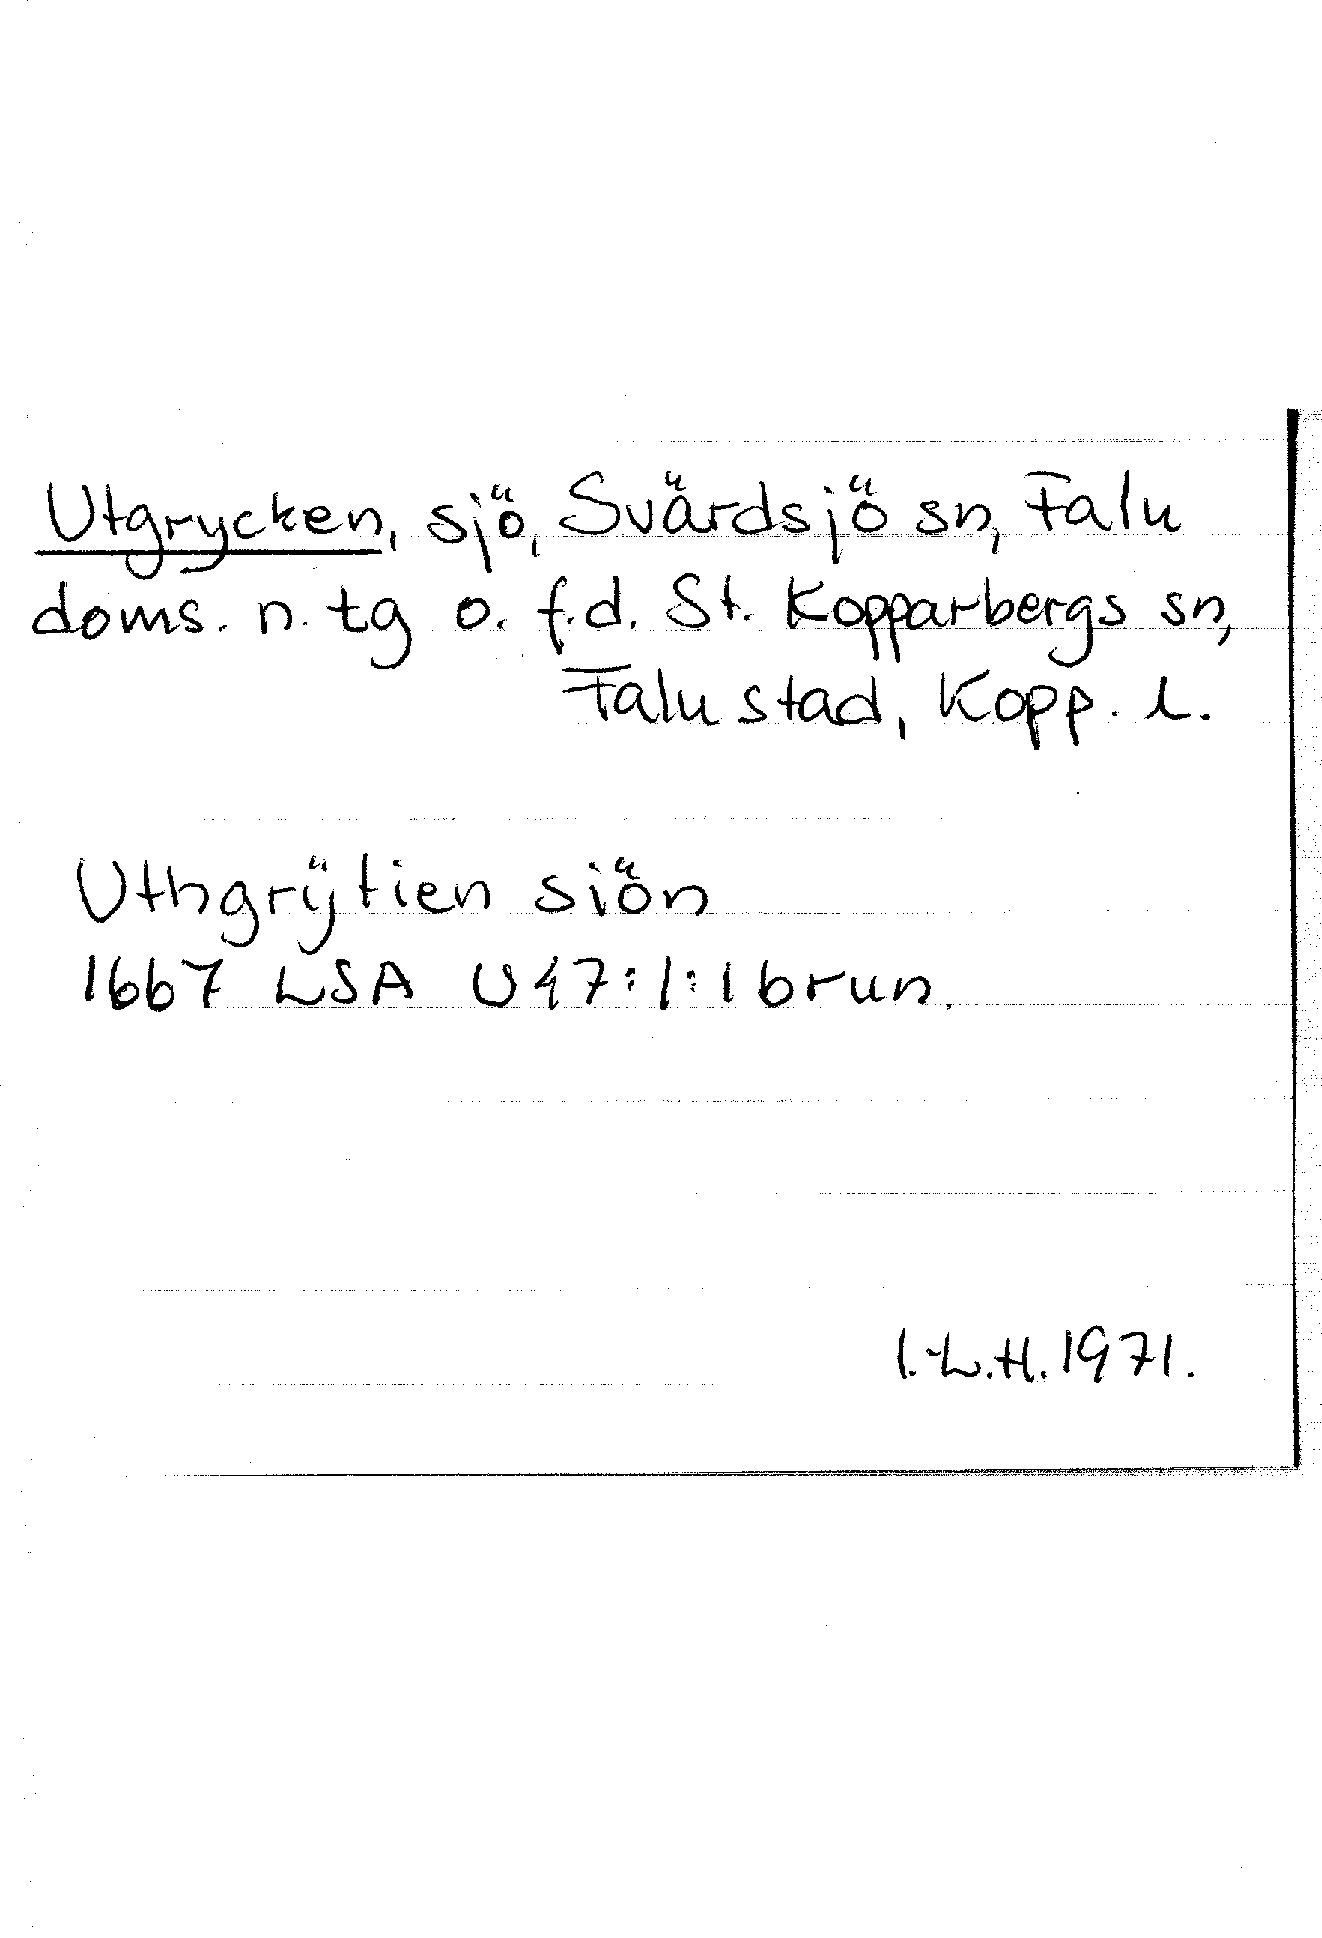 Utgrycken, sjö, Svärdsjö sn, Falu
doms. n. tg o. f.d. St. Kopparbergs sn,
Falu stad, Kopp. l.
Uthgrÿtien siön
1667 LSA U47:1:1 brun.
I.-L.H. 1971.